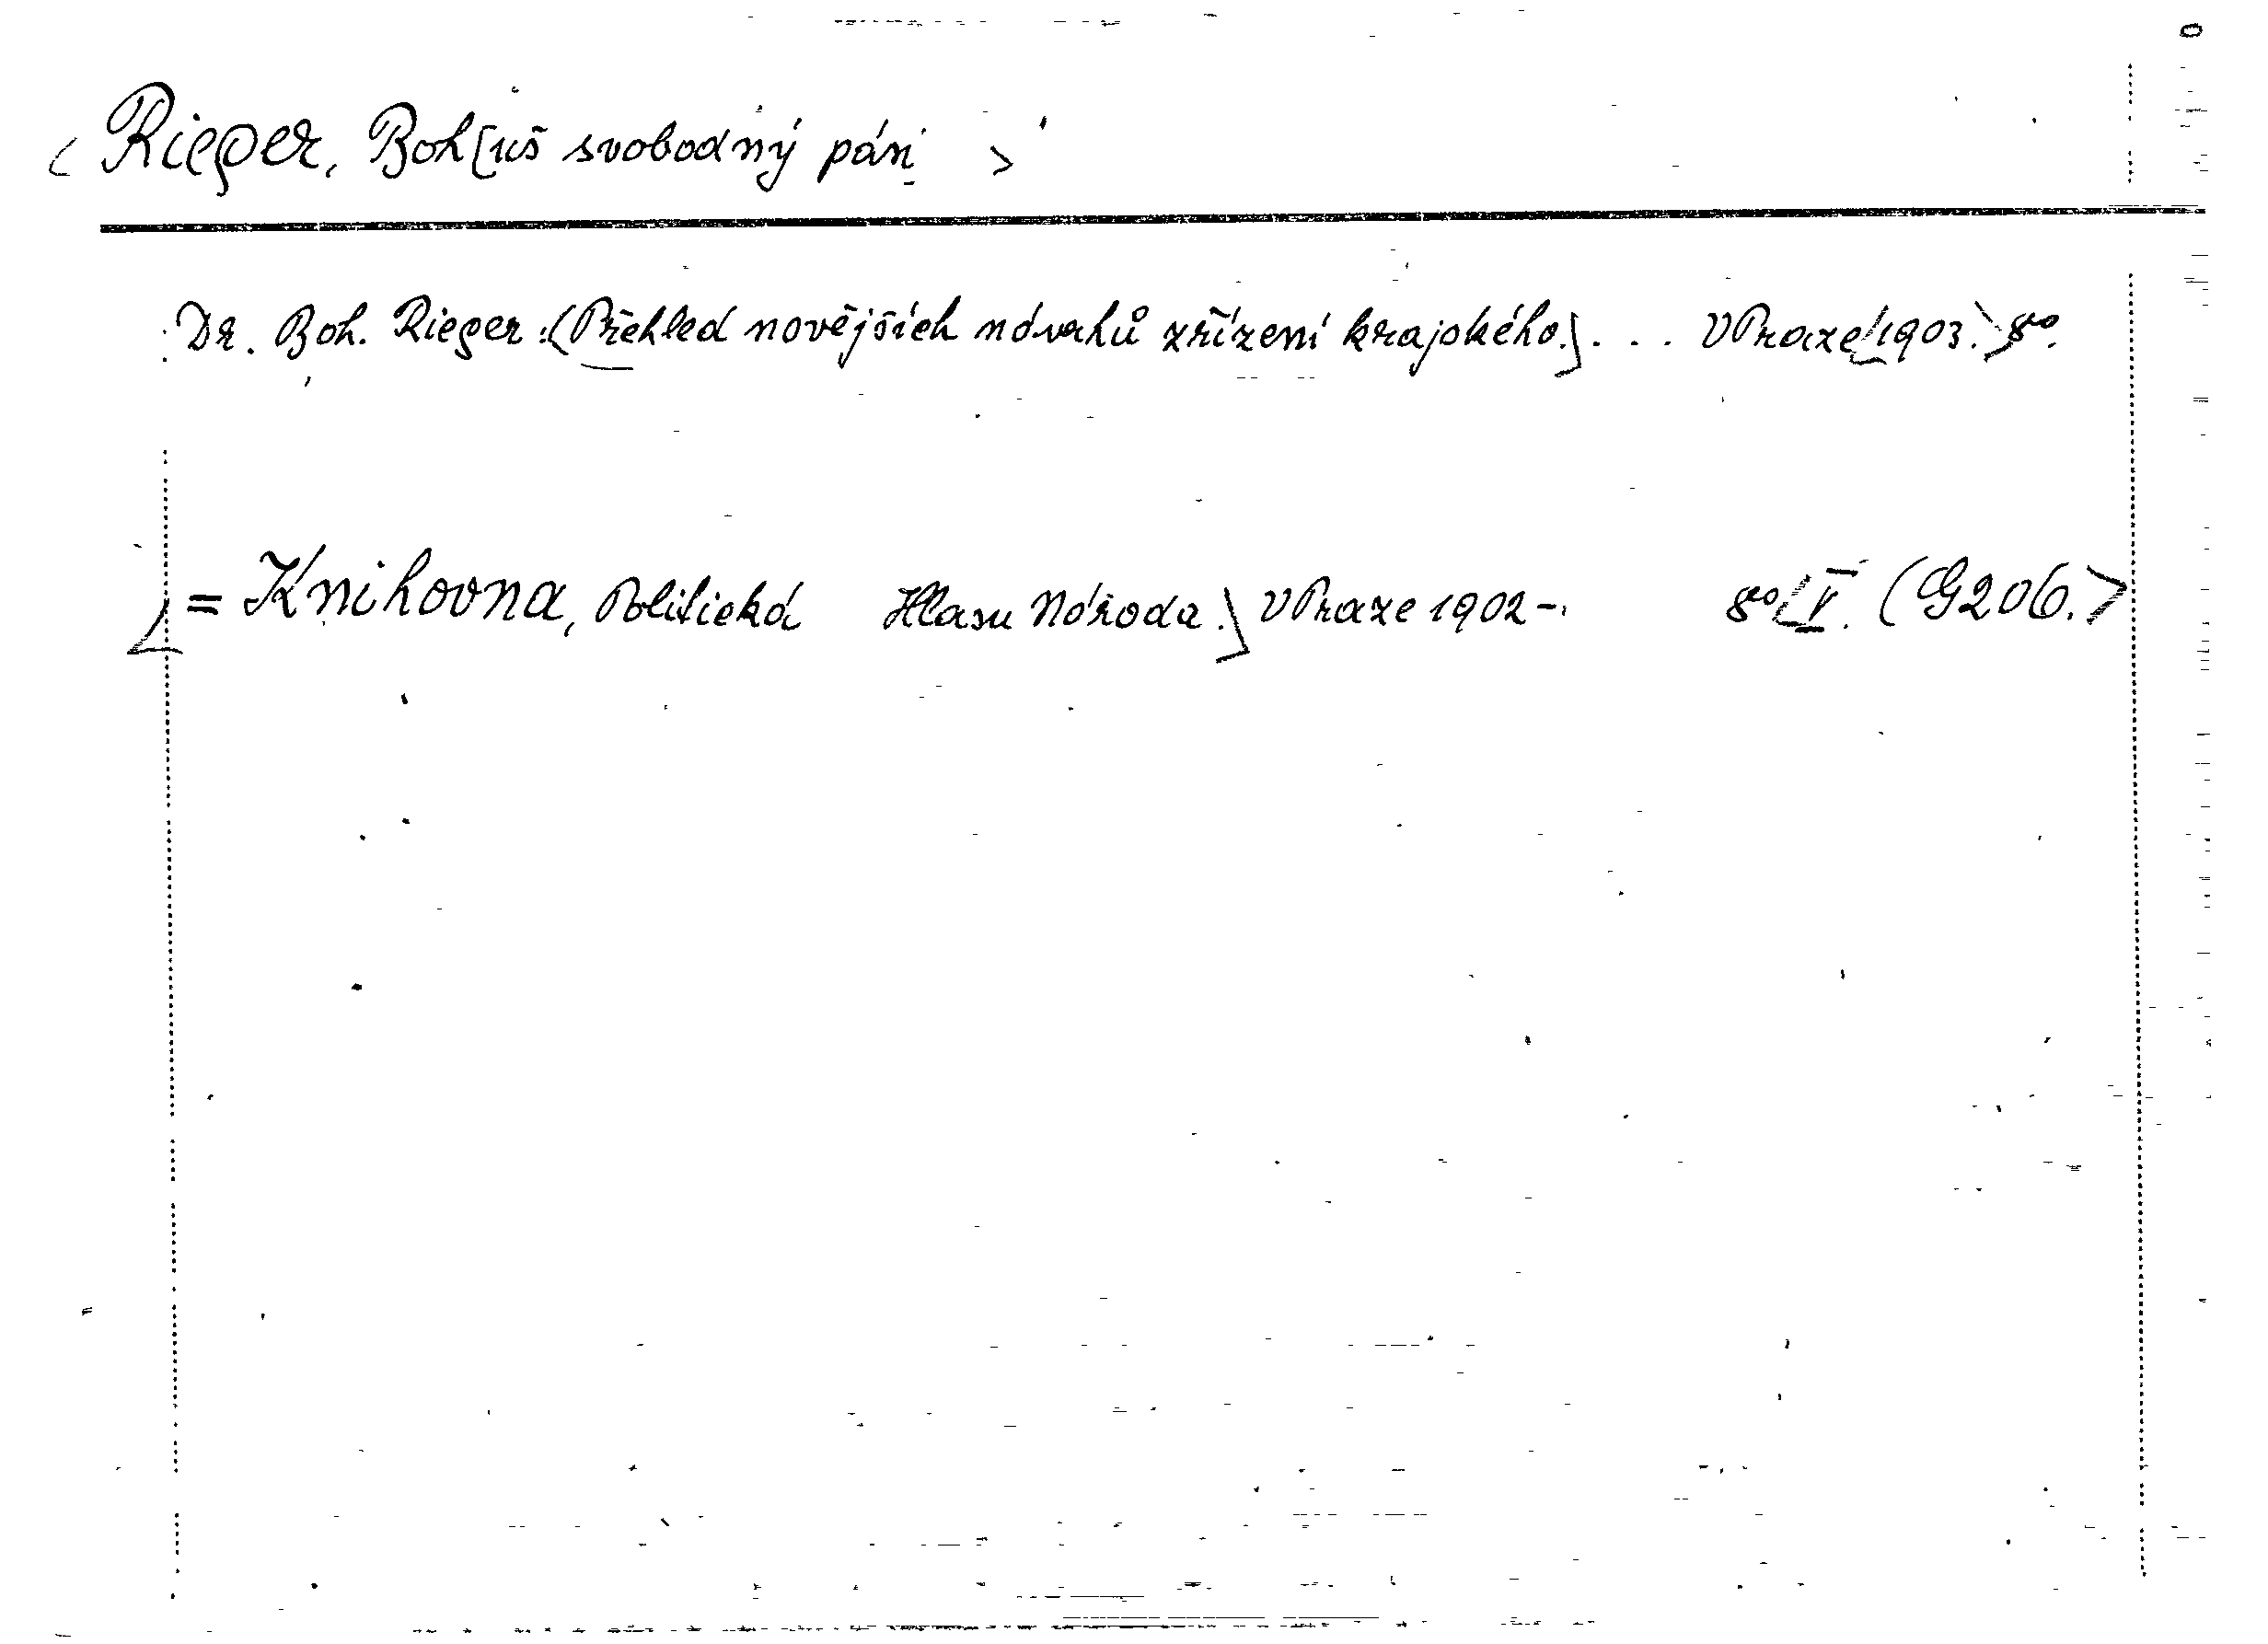 ⟨Rieger, Boh[uš svobodný pán ⟩
Dr. Boh. Rieger: (Přehled novějších návrhů zřízení krajského.] . . . V Praze [1903.] 8º.
[= Knihovna, Politická Hlasu Národa.] V Praze 1902- 8º [V. (G206.⟩